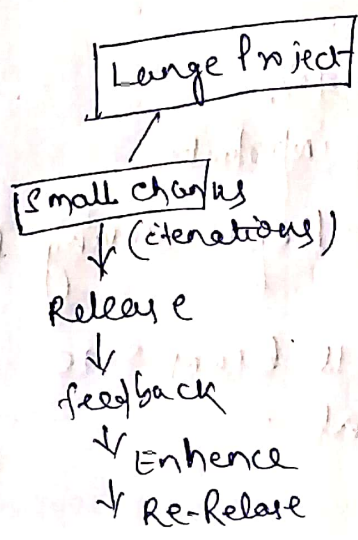 Large Project
Small chunks
(iterations)
Release
feedback
Enhence
Re-Relase